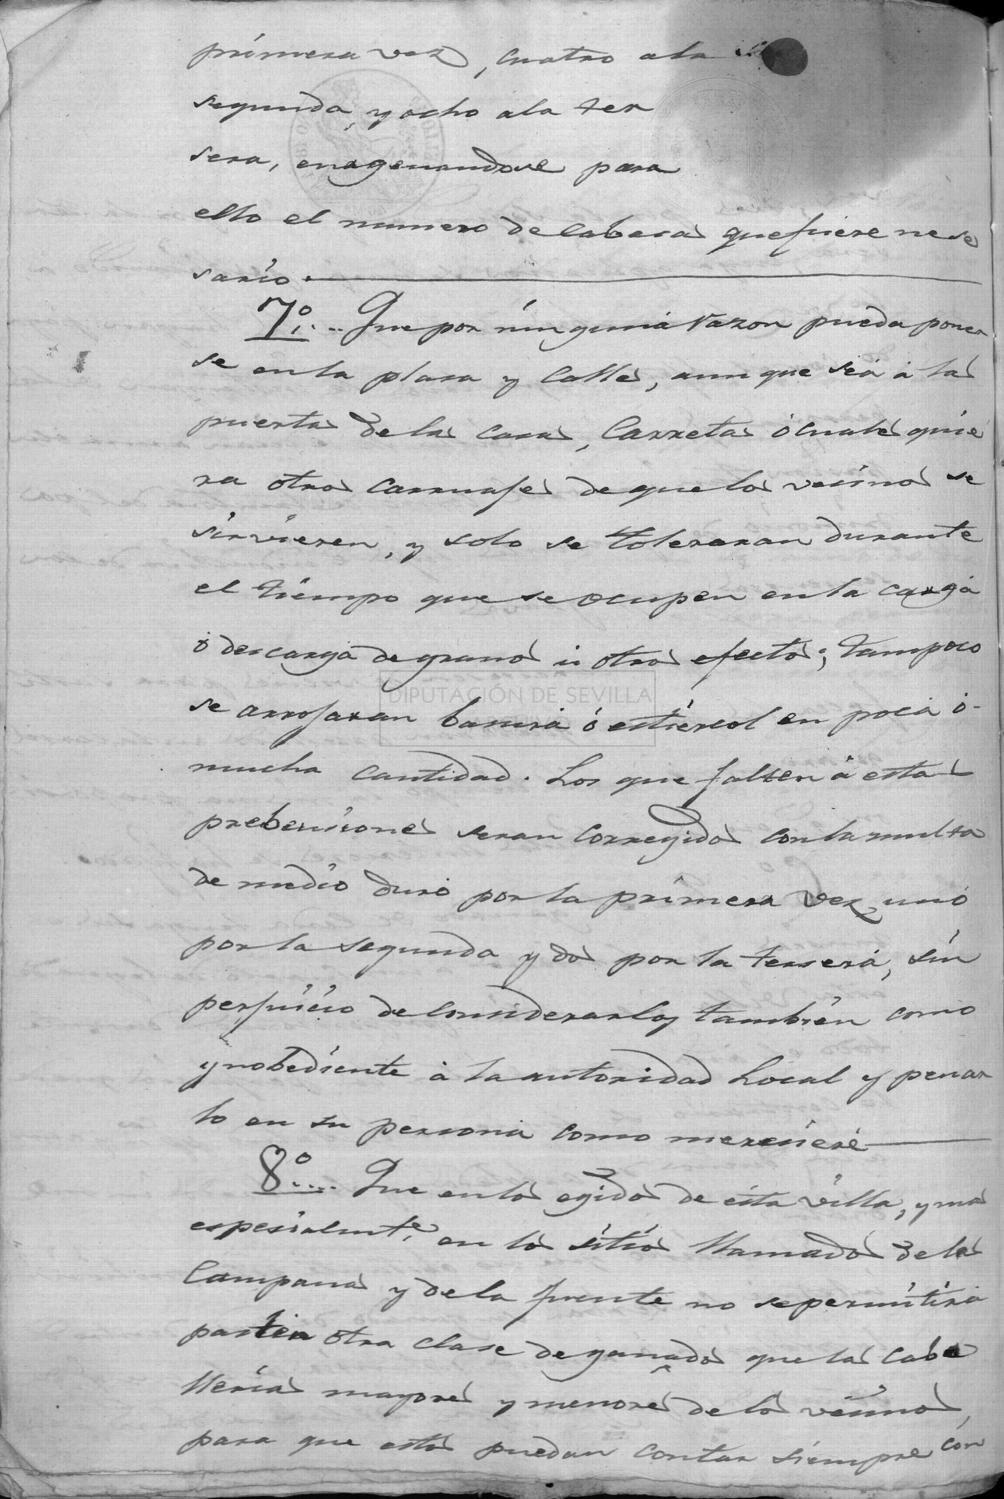 primera vez, cuatro a la
segunda, y ocho ala ter
sera, enagenandose para
ello el numero de cabesas que fuere nese
sario.
7º... Que por ninguna razon pueda poner
se en la plasa y calles, aun que sea a las
puertas de las casas, carretas ó cuales quie
ra otros carruajes de que los vecinos se
sirvieren, y solo se toleraran durante
el tiempo que se ocupen en la carga
ó descarga de granos ú otros efectos; tampoco
DIPUTACIÓN DE SEVILLA
se arrojaran basura ó estiercol en poca ó
mucha cantidad. Los que falten á estas
prebensiones seran corregidos con la multa
de medio duro por la primera vez, uno
por la segunda y dos por la tersera, sin
perjuicio de considerarlos tambien como
ynobedientes á la autoridad Local y penar
lo en su persona como meresiere
8º.... Que en los egidos de esta villa, y mas
espesialmte. en los sitios llamados de la
Campana y de la fuente no se permitira
otra clase de ganados que las caba
llerias mayores y menores de los vecinos,
para que estos puedan contar siempre con